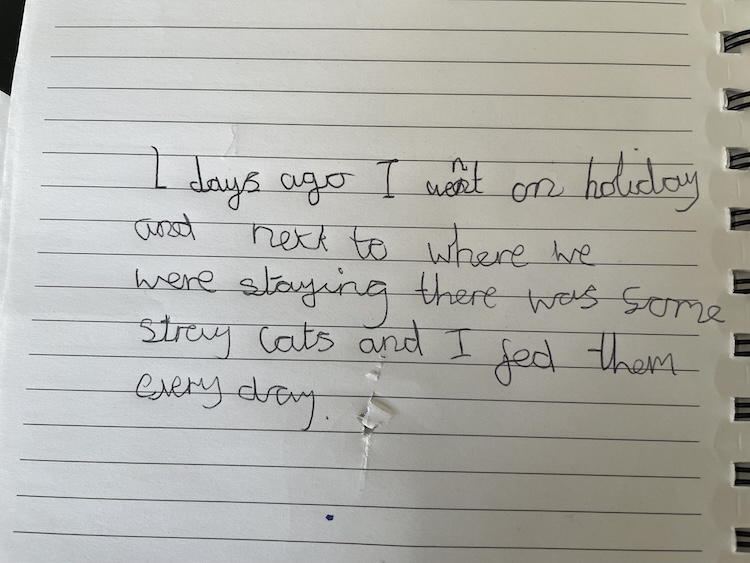 1 days ago I went on holiday
and next to where we
were staying there was some
stray cats and I fed them
every day.